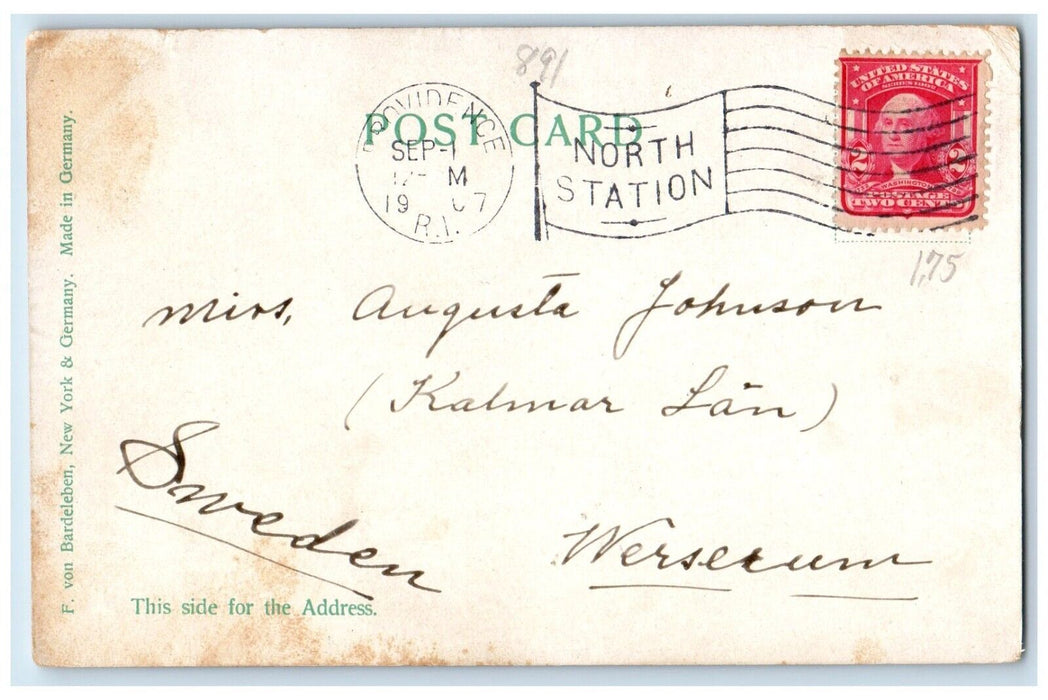 891
POST CARD
PROVIDENCE
SEP-1
M
19 07
R.I.
NORTH
STATION
UNITED STATES
OF AMERICA
SERIES 1902
2 2
WASHINGTON
POSTAGE
TWO CENTS
1,75
Miss. Augusta Johnson
(Kalmar Län)
Sweden
Werserum
This side for the Address.
F. von Bardeleben, New York & Germany. Made in Germany.